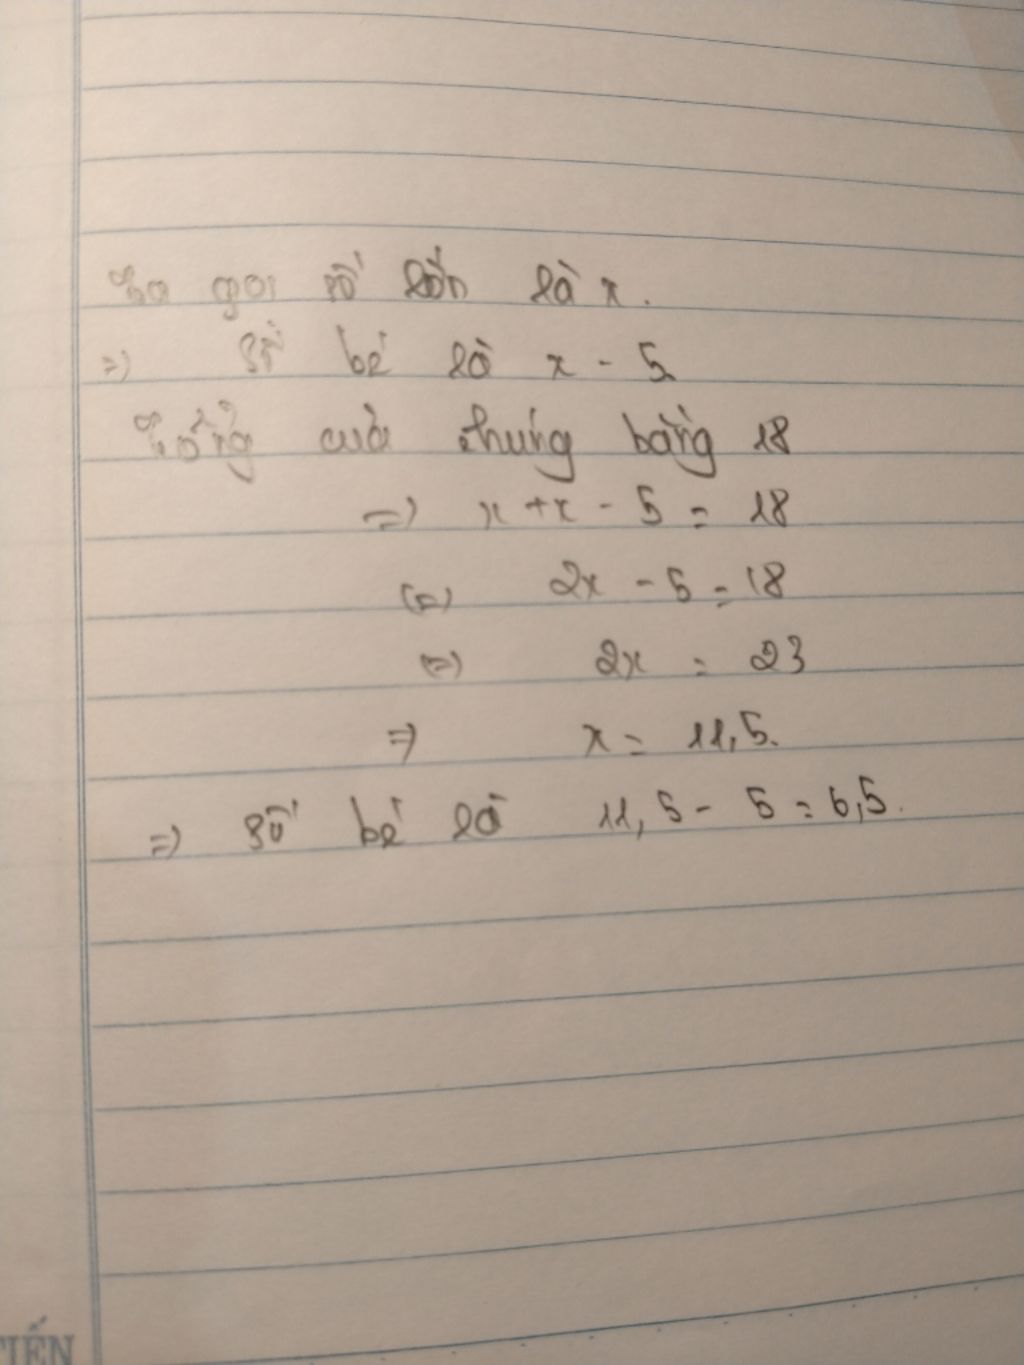 Ta gọi số lớn là x.
=) Số bé là x - 5
Tổng của chúng bằng 18
=) x + x - 5 = 18
(=) 2x - 5 = 18
(=) 2x = 23
=) x = 11,5.
=) số bé là 11,5 - 5 = 6,5.
TIẾN